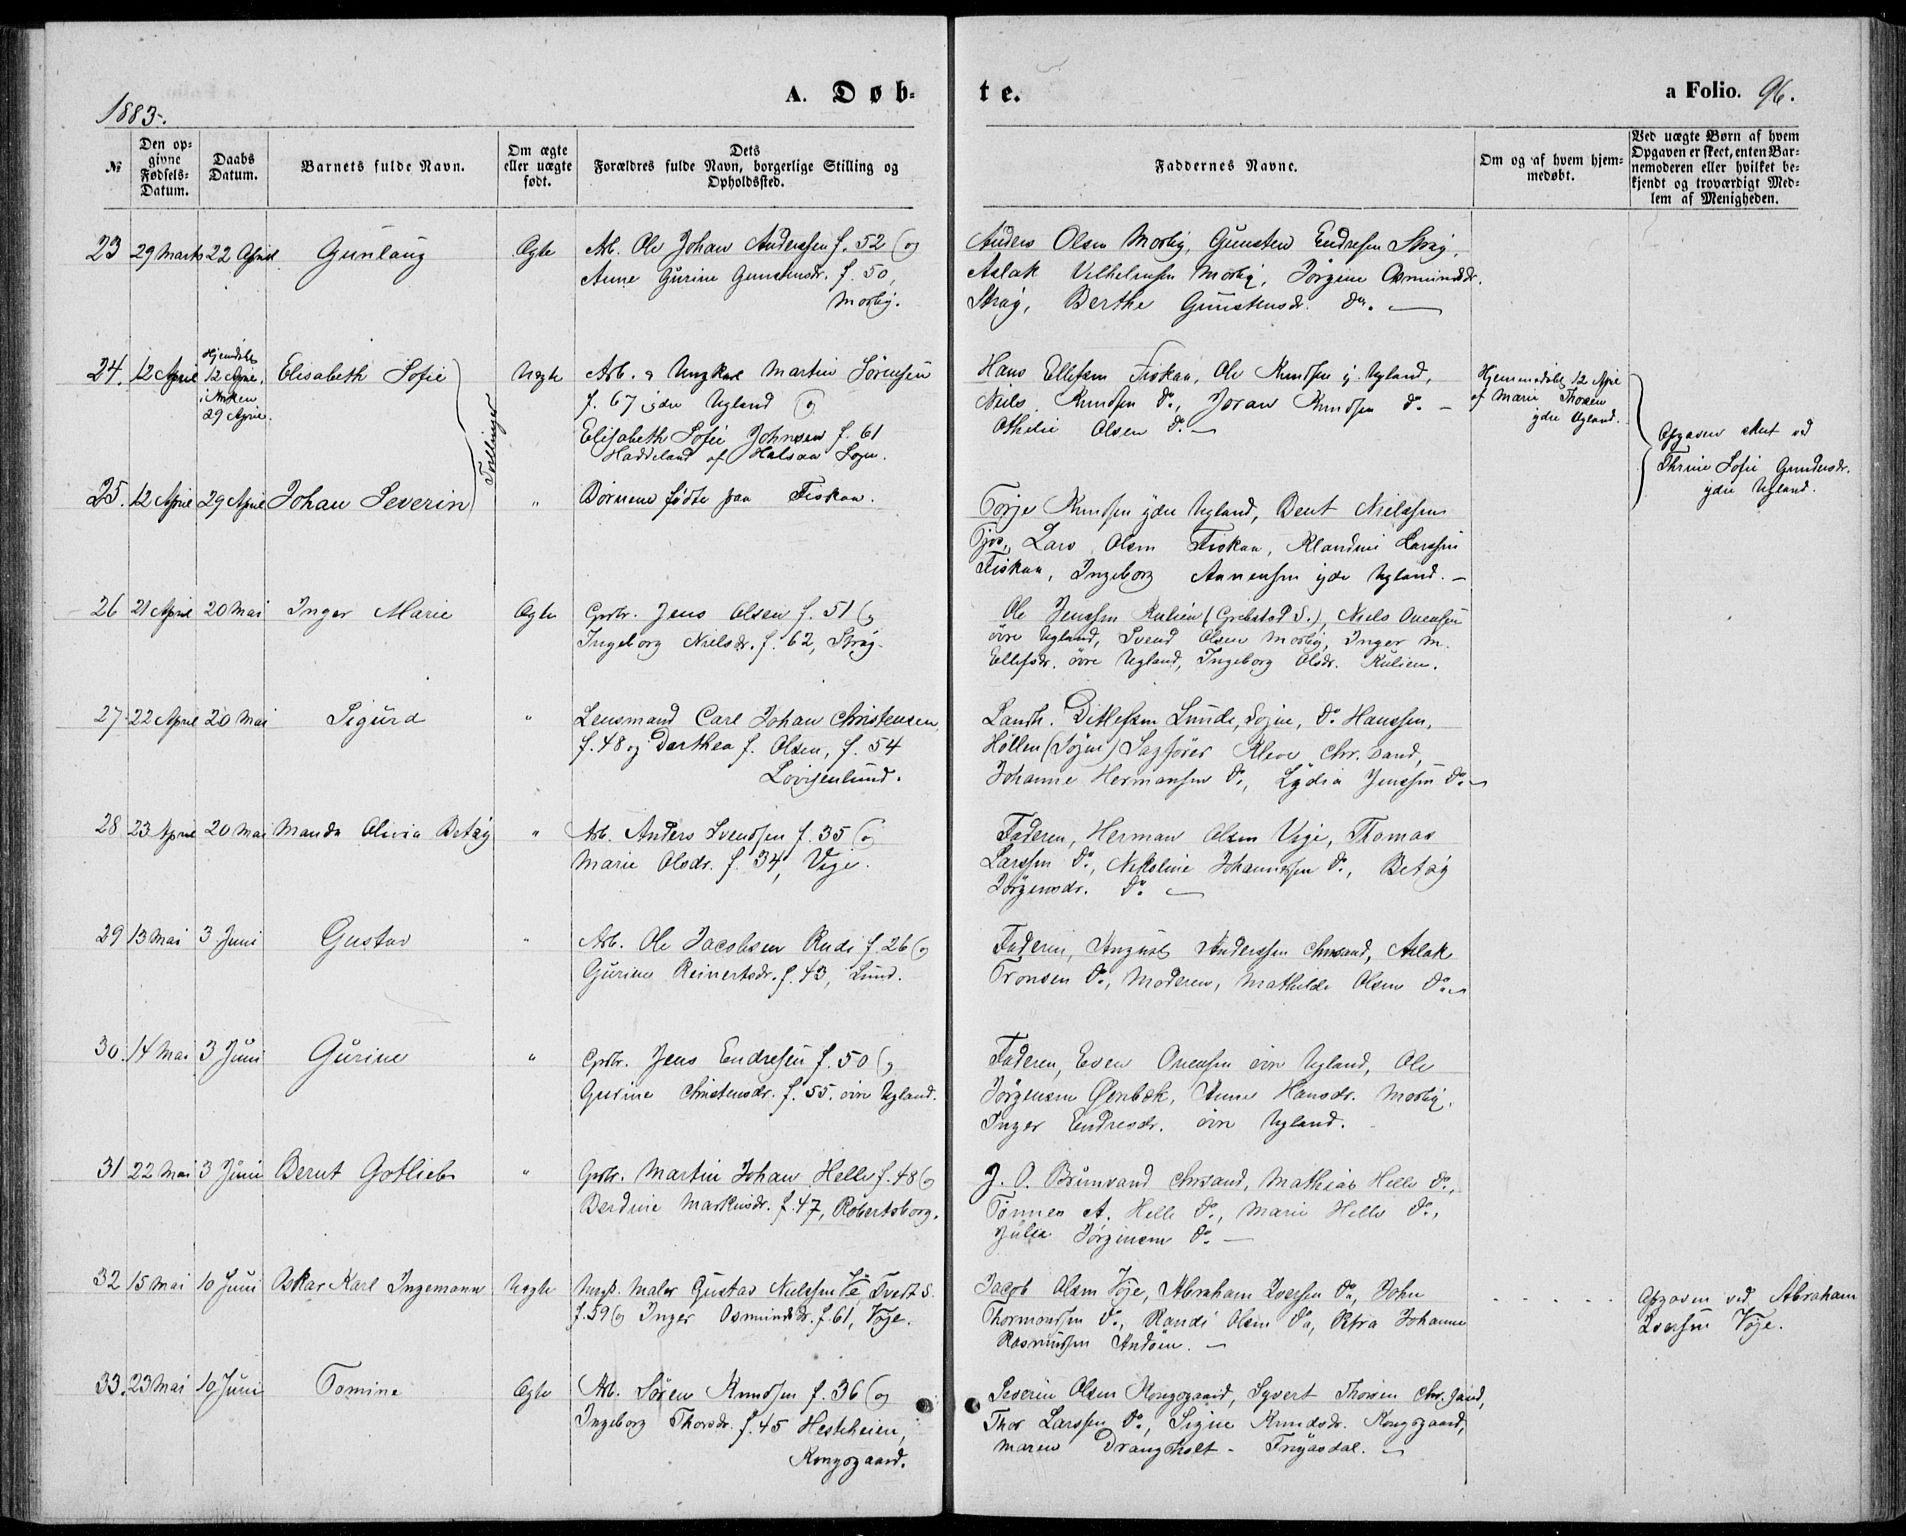 1883.
A. Døb-
te.
a Folio. 96.
№
Den op-
givne
Fødsels-
Datum.
Daabs
Datum.
Barnets fulde Navn.
Om ægte
eller uægte
født.
Dets
Forældres fulde Navn, borgerlige Stilling og
Opholdssted.
Faddernes Navne.
Om og af hvem hjem-
medøbt.
Ved uægte Børn af hvem
Opgaven er skeet, enten Bar-
nemoderen eller hvilket be-
kjendt og troværdigt Med-
lem af Menigheden.
23 29 Marts 22 April Gunlaug Ægte Arb. Ole Johan Anderssen f. 52 og
Anne Gurine Gunstensdr. f. 50,
Mosby.
Anders Olsen Mosby, Gunsten Endresen Strøg,
Aslak Vilhelmsen Mosby, Jørgine Osmundsdr.
Strøg, Berthe Gunstensdr. do. —
24. 12 April Hjemdøbt
12 April,
i Kirken
29 April.
Elisabeth Sofie Uægte Arb. & Ungkarl Martin Sørensen
f. 67 ydre Ugland og
Elisabeth Sofie Johnsen f. 61
Haddeland af Halsaa Sogn.
Tvillinger
Hans Ellefsen Fiskaa, Ole Knudsen y. Ugland,
Niels Knudsen do., Joran Knudsen do. —
Othelie Olsen do. —
Hjemmedøbt 12 April
af Marie Thorsen
ydre Ugland.
Opgaven skeet ved
Thrine Sofie Gundersdr.
ydre Ugland.
25. 12 April 29 April Johan Severin " Børnene fødte paa Fiskaa.
Torje Knudsen ydre Ugland, Bent Nielssen
Tjos, Lars Olsen Fiskaa, Klandine Larssen
Fiskaa, Ingeborg Aanensen ydre Ugland. —
26 21 April 20 Mai Inger Marie Ægte Gprbr. Jens Olsen f. 51 og
Ingeborg Nielsdr. f. 62, Strøg.
Ole Jenssen Kulien (Grebstad S.), Niels Onensen
övre Ugland, Svend Olsen Mosby, Inger M.
Ellefsdr. övre Ugland, Ingeborg Olsdr. Kulien.
27. 22 April 20 Mai Sigurd " Lensmand Carl Johan Christensen,
f. 48 og Dorthea f. Olsen, f. 54
Lovisenlund.
Landh. Ditlefsen Lunde, Sogne, do. Hanssen,
Höllen (Søgne) Sagfører Kleve Chr. sand,
Johanne Hermansen do., Lydia Jenssen do. —
28 23 April 20 Mai Manda Olivia Betsy " Arb. Anders Svendsen f. 35 og
Marie Olsdr. f. 34, Vøje.
Faderen, Herman Olsen Vøje, Thomas
Larssen do., Nikoline Johannessen do., Betsy
Jörgensdr. do. —
29 13 Mai 3 Juni Gustav " Arb. Ole Jacobsen Rude f. 26 og
Gurine Reinertsdr. f. 43, Lund.
Faderen, August Anderssen Chrsand, Aslak
Tronsen do., Moderen, Mathilde Olsen do. —
30. 14 Mai 3 Juni Gurine " Gprbr. Jens Endresen f. 50 og
Gurine Christensdr. f. 55. övre Ugland.
Faderen, Even Onensen övre Ugland, Ole
Jörgensen Øenbæk, Anne Hansdr. Mosby,
Inger Endresdr. övre Ugland.
31 22 Mai 3 Juni Bernt Gotlieb " Gprbr. Martin Johan Helle f. 48 og
Berdine Markusdr. f. 47, Robertsborg.
J. O. Brunvand Chrsand, Mathias Helle do.,
Tønnes A. Helle do., Marie Helle do.,
Julia Jörginsen do. —
32 15 Mai 10 Juni Oskar Karl Ingemann Uægte Ungk. Maler Gustav Nielssen Ve, Tveit S.
f. 59 og Inger Osmundsdr. f. 61, Vøje.
Jacob Olsen Vøje, Abraham Iversen do., John
Thormondsen do., Randi Olsen do., Petra Johanne
Rasmussen Andøen. —
Opgaven ved Abraham
Iversen Vøje.
33. 23 Mai 10 Juni Tomine Ægte Arb. Sören Knudsen f. 36 og
Ingeborg Thorsdr. f. 45 Hesteheien,
Kongsgaard.
Severin Olsen Kongsgaard, Syvert Thorsen Chr. sand,
Thor Larssen do., Signe Knudsdr. Kongsgaard,
Maren Drangsholt - Frøisdal. —